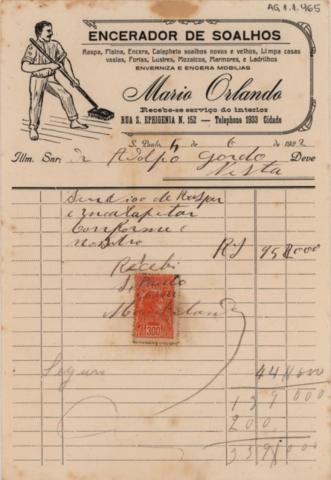 AG.1.1.965
ENCERADOR DE SOALHOS
Raspa, Plaina, Encera, Calapheta soalhos novos e velhos, Limpa casas
vasias, Forlas, Lustres, Mozaicos, Marmores, e Ladrilhos
ENVERNIZA E ENCERA MOBILIAS
Mario Orlando
Recebe-se serviço do interior
RUA S. EPHIGENIA N. 152 — Telephone 1933 Cidade
S. Paulo, 4 de 6 de 192
Illm. Snr. Dr Adolpo Gordo Deve
Nesta
de Raspar
e
Conforme
RS 95$000
Recebi
S. Paulo
300
Segue 44$000
139000
200
339$000